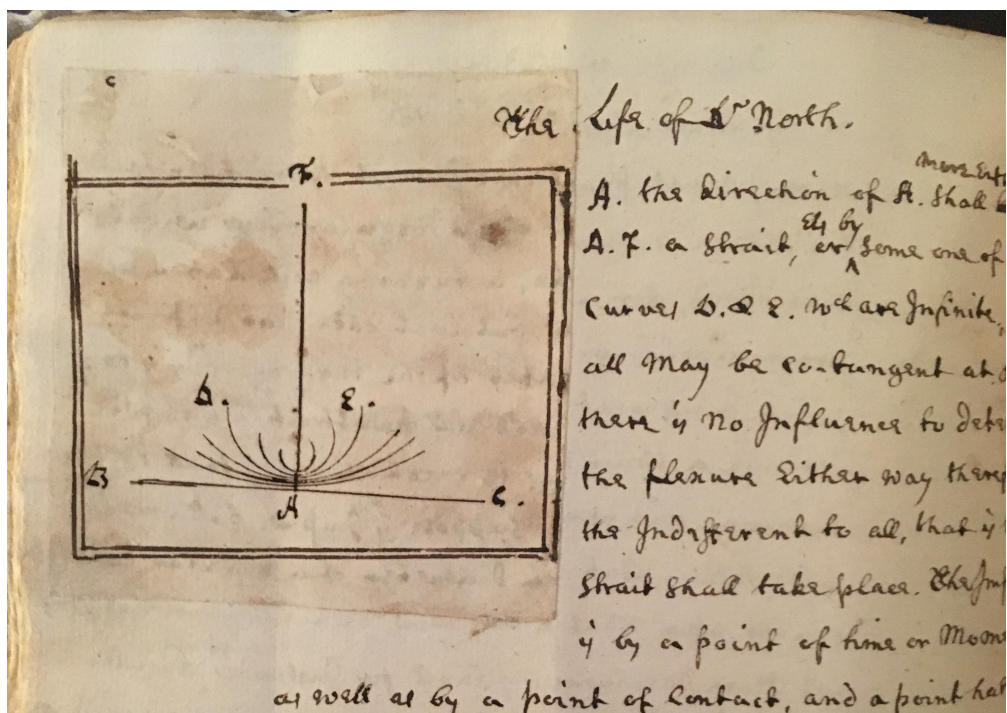 c
The Life of Dr North.
F.
more
A. the direction of A. shall
els by
A. F. a Strait, or ^ Some one of
curves D. & E. wch are Infinite,
D. E.
all May be co-tangent at
there is No Influence to
the flexure Either way
B C.
A
the Indifferent to all, that is
Strait shall take place. The
is by a point of time or
as well as by a point of Contact, and a point